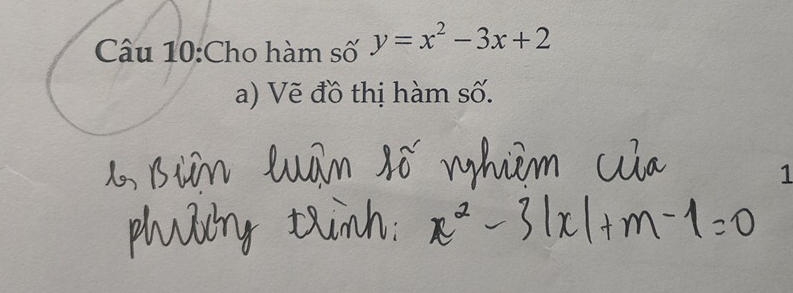 Câu 10:Cho hàm số y = x² − 3x + 2
a) Vẽ đồ thị hàm số.
b, Biện luận số nghiệm của
1
phương trình: x² − 3|x| + m − 1 = 0